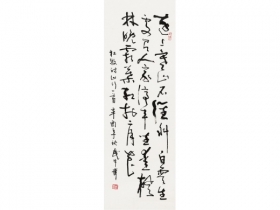 遠上寒山石徑斜白雲生
處有人家停車坐愛楓
林晚霜葉紅於二月花
杜牧詩山行一首辛酉年秋武中奇書